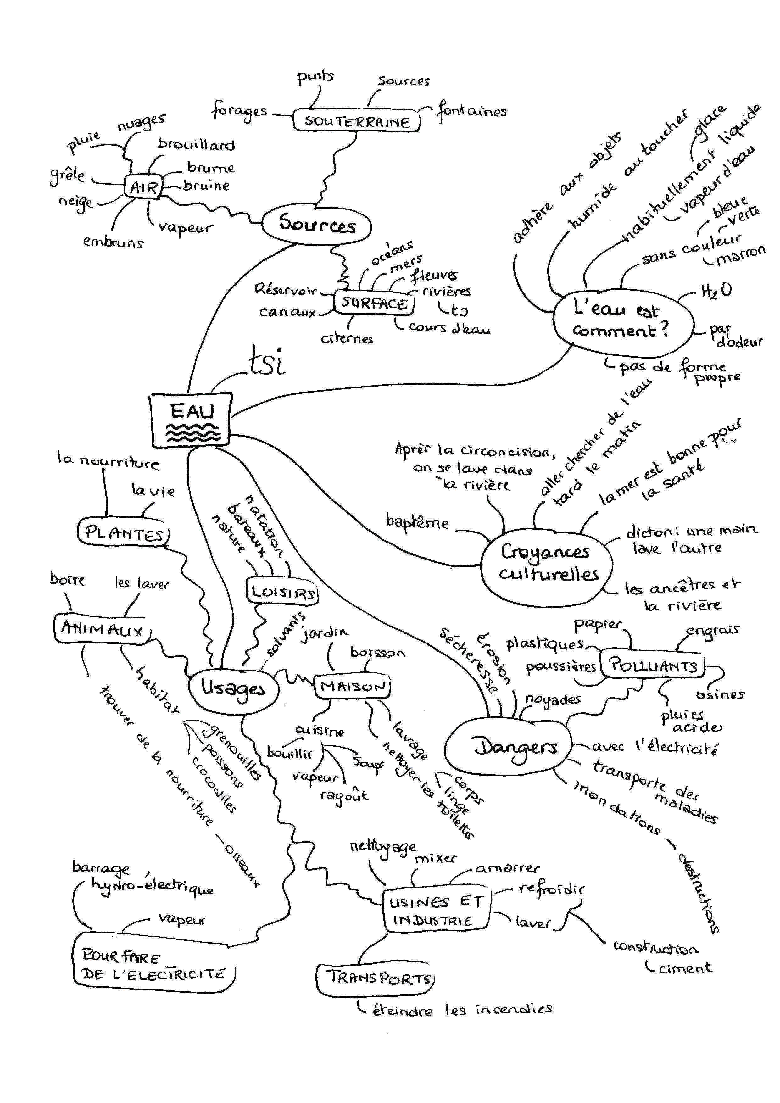 puits
sources
forages
SOUTERRAINE
fontaines
pluie
nuages
brouillard
grêle
AIR
brume
bruine
neige
embruns
vapeur
Sources
océans
mers
fleuves
Réservoir
SURFACE
rivières
canaux
citernes
cours d'eau
adhère aux objets
humide au toucher
habituellement liquide
glace
vapeur d'eau
sans couleur
bleue
verte
marron
L'eau est
comment?
H2O
pas
d'odeur
pas de forme
propre
tsi
EAU
Après la circoncision,
on se lave dans
la rivière
aller chercher de l'eau
tard le matin
la mer est bonne pour
la santé
baptême
Croyances
culturelles
dicton: une main
lave l'autre
les ancêtres et
la rivière
la nourriture
la vie
PLANTES
natation
bateaux
nature
LOISIRS
boire
les laver
ANIMAUX
habitat
grenouilles
poissons
crocodiles
trouver de la nourriture
oiseaux
Usages
solvants
jardin
boisson
MAISON
cuisine
bouillir
vapeur
ragoût
soupe
lavage
corps
linge
nettoyer les toilettes
sécheresse
érosion
noyades
Dangers
papier
plastiques
poussières
POLLUANTS
engrais
usines
pluies
acides
avec l'électricité
transporte des
maladies
inondations
destructions
barrage
hydro-électrique
vapeur
POUR FAIRE
DE L'ELECTRICITÉ
nettoyage
mixer
amarrer
USINES ET
INDUSTRIE
refroidir
laver
construction
ciment
TRANSPORTS
éteindre les incendies